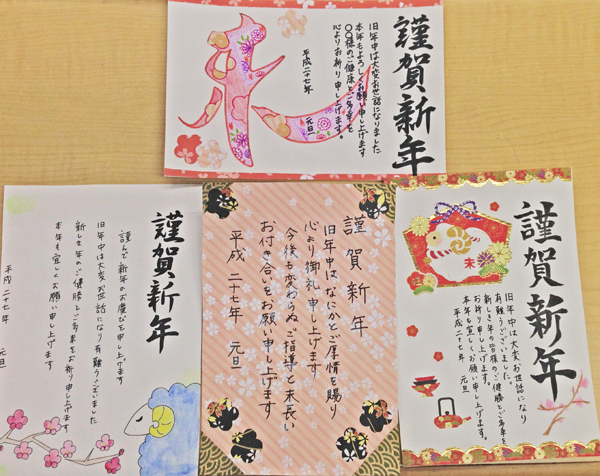 謹賀新年
旧年中は大変お世話になりました
本年もよろしくお願い申し上げます
〇〇様のご健康とご多幸を
心よりお祈り申し上げます。
平成二十七年
元旦
謹賀新年
謹んで新年のお慶びを申し上げます
旧年中は大変お世話になり有難うございました
新しき年のご健勝とご多幸をお祈り申し上げます
本年も宜しくお願い申し上げます
平成二十七年 元旦
謹賀新年
旧年中はなにかとご厚情を賜り
心より御礼申し上げます
今後も変わらぬご指導と末長い
お付き合いをお願い申し上げます
平成二十七年 元旦
謹賀新年
旧年中は大変お世話になり
有難うございました。
新しき年の皆様のご健勝とご多幸を
お祈り申し上げます。
本年も宜しくお願い申し上げます。
平成二十七年 元旦
未